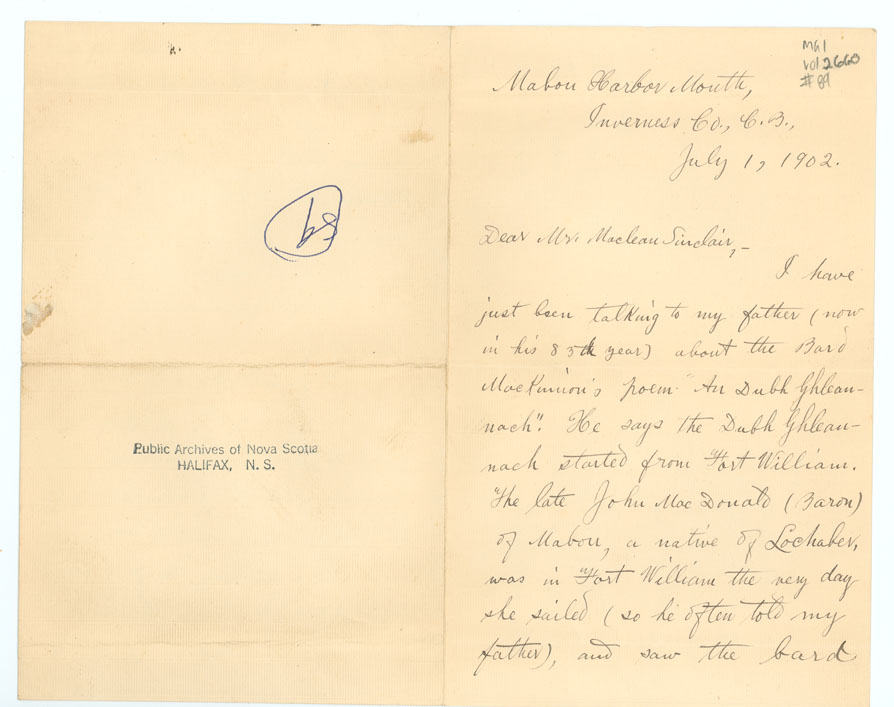 Public Archives of Nova Scotia
HALIFAX, N. S.
MG1
vol 2660
#89
Mabou Harbor Mouth,
Inverness Co., C. B.,
July 1, 1902.
Dear Mr. Maclean Sinclair,-
I have
just been talking to my father (now
in his 85th year) about the Bard
MacKinnon's poem "An Dubh Ghlean-
nach". He says the Dubh Ghlean-
nach started from Fort William.
The late John MacDonald (Baron)
of Mabou, a native of Lochaber,
was in Fort William the very day
she sailed (so he often told my
father), and saw the bard